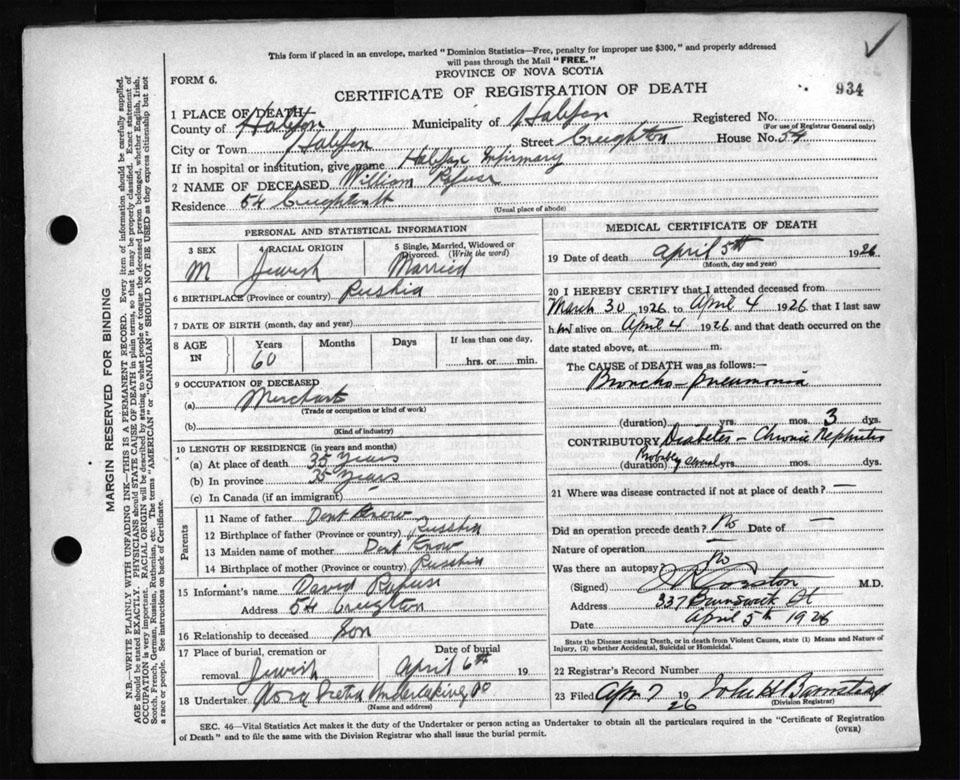 This form if placed in an envelope, marked "Dominion Statistics—Free, penalty for improper use $300," and properly addressed
will pass through the Mail "FREE."
FORM 6.
PROVINCE OF NOVA SCOTIA
934
CERTIFICATE OF REGISTRATION OF DEATH
1 PLACE OF DEATH
County of Halifax Municipality of Halifax Registered No.
(For use of Registrar General only)
City or Town Halifax Street Creighton House No. 54
If in hospital or institution, give name Halifax Infirmary
2 NAME OF DECEASED William Rafuse
Residence 54 Creighton St
(Usual place of abode)
PERSONAL AND STATISTICAL INFORMATION
3 SEX 4 RACIAL ORIGIN 5 Single, Married, Widowed or
Divorced. (Write the word)
M Jewish Married
6 BIRTHPLACE (Province or country) Rushia
7 DATE OF BIRTH (month, day and year)
8 AGE IN Years Months Days If less than one day,
60 hrs. or min.
9 OCCUPATION OF DECEASED
(a) Merchant
(Trade or occupation or kind of work)
(b)
(Kind of industry)
10 LENGTH OF RESIDENCE (in years and months)
(a) At place of death 35 Years
(b) In province 35 Years
(c) In Canada (if an immigrant)
Parents
11 Name of father Dont Know
12 Birthplace of father (Province or country) Russhia
13 Maiden name of mother Dont Know
14 Birthplace of mother (Province or country) Russhia
15 Informant's name David Rafuse
Address 54 Creigton
16 Relationship to deceased Son
17 Place of burial, cremation or Date of burial
removal Jewish April 6th 19
18 Undertaker Undertaking Co
(Name and address)
MEDICAL CERTIFICATE OF DEATH
19 Date of death April 5th 1926
(Month, day and year)
20 I HEREBY CERTIFY that I attended deceased from
March 30 1926 to April 4 1926 that I last saw
him alive on April 4 1926 and that death occurred on
date stated above, at m.
The CAUSE OF DEATH was as follows:—
Broncho-pneumonia
(duration) yrs. mos. 3 dys.
CONTRIBUTORY Diabetes - Chronic Nephritis
(duration) Probably yrs. mos. dys.
21 Where was disease contracted if not at place of death? —
Did an operation precede death? No Date of —
Nature of operation —
Was there an autopsy? No
(Signed) M.D.
Address 337 Brunswick St
Date April 5th 1926
State the Disease causing Death, or in death from Violent Causes, state (1) Means and Nature of
Injury, (2) whether Accidental, Suicidal or Homicidal.
22 Registrar's Record Number
23 Filed Apr 7 1926 John H Barnstead
(Division Registrar)
SEC. 46—Vital Statistics Act makes it the duty of the Undertaker or person acting as Undertaker to obtain all the particulars required in the "Certificate of Registration
of Death" and to file the same with the Division Registrar who shall issue the burial permit. (OVER)
MARGIN RESERVED FOR BINDING
N.B.—WRITE PLAINLY WITH UNFADING INK—THIS IS A PERMANENT RECORD. Every item of information should be carefully supplied.
AGE should be stated EXACTLY. PHYSICIANS should STATE CAUSE OF DEATH in plain terms, so that it may be properly classified. Exact statement of
OCCUPATION is very important. RACIAL ORIGIN will be described by stating to what people or tongue the deceased person belonged, whether English, Irish,
Scotch, French, German, Russian, Ruthenian, etc. The terms "AMERICAN" or "CANADIAN" SHOULD NOT BE USED as they express citizenship but not
a race or people. See instructions on back of Certificate.